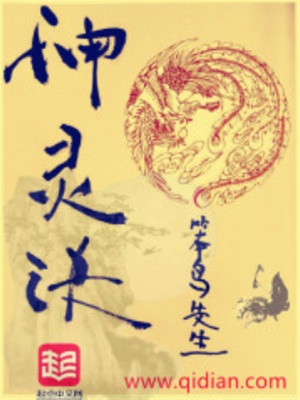 神灵诀
笨鸟先生
起
起点中文网
www.qidian.com